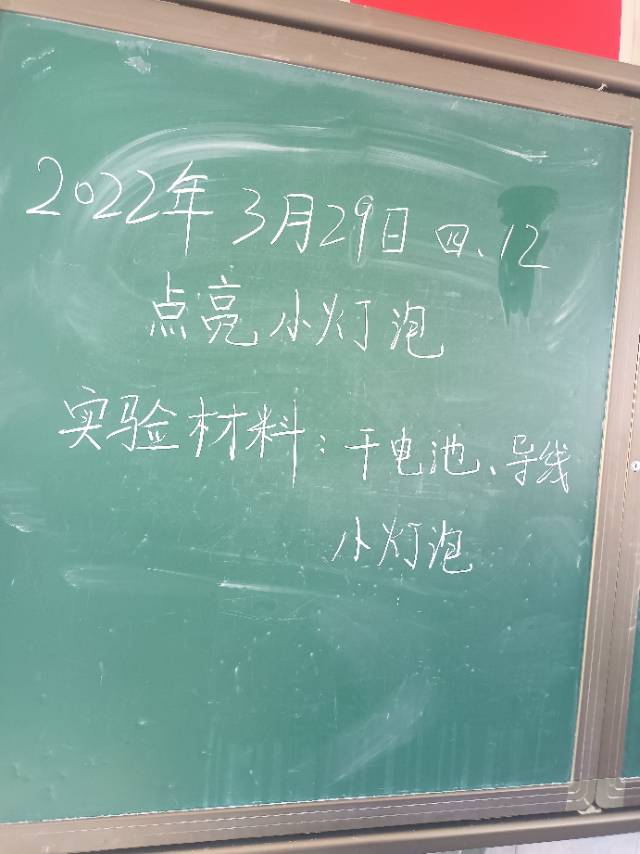 2022年3月29日 四、12
点亮小灯泡
实验材料：干电池、导线
小灯泡